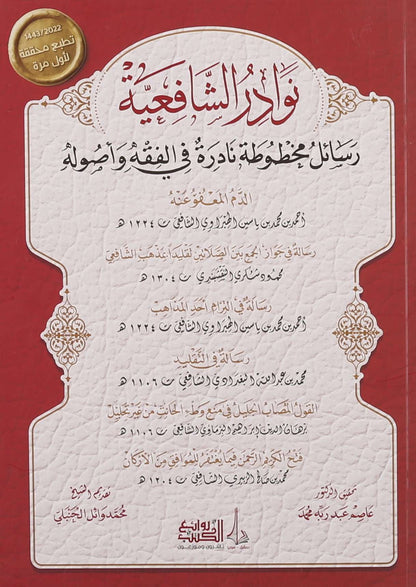 1443/2022
تطبع محققة
لأول مرة
نوادر الشافعية
رسائل مخطوطة نادرة في الفقه وأصوله
الدم المعفو عنه
أحمد بن محمد بن ياسين الجبراوي الشافعي ت ١٢٢٤ هـ
رسالة في جواز الجمع بين الصلاتين تقليدا بمذهب الشافعي
محمود شكري التفسيري ت ١٣٠٤ هـ
رسالة في التزام أحد المذاهب
أحمد بن محمد بن ياسين الجبراوي الشافعي ت ١٢٢٤ هـ
رسالة في التقليد
محمد بن عبد الله البغدادي الشافعي ت ١١٠٦ هـ
القول المصاب الجليل في منع وطء الحانث من غير تحليل
برهان الدين إبراهيم البرماوي الشافعي ت ١١٠٦ هـ
فتح الكريم الرحمن فيما يغتفر للموافق من الأركان
محمد بن صالح الزبيري الشافعي ت ١٢٠٤ هـ
تحقيق الدكتور
عاصم عبد ربه محمد
تقديم الشيخ
محمد وائل الحنبلي
روائع الكتب
ناشرون وموزعون